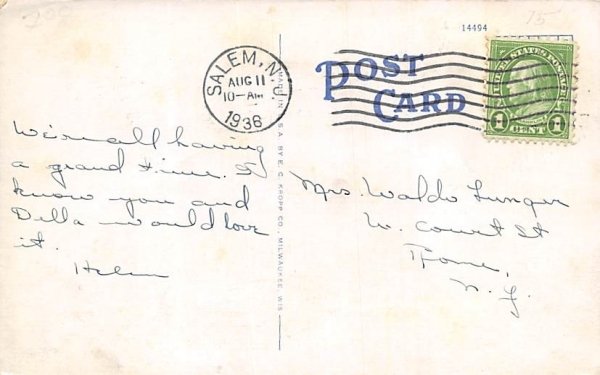 14494
15
SALEM, N.J.
AUG 11
10-AM
1938
POST
CARD
UNITED STATES POSTAGE
1 CENT 1
MADE IN U.S.A. BY E. C. KROPP CO., MILWAUKEE, WIS.
We're all having
a grand time. I
know you and
Della would love
it.
Helen
Mrs. Waldo Lunger
W. Court St
Rome,
N.Y.